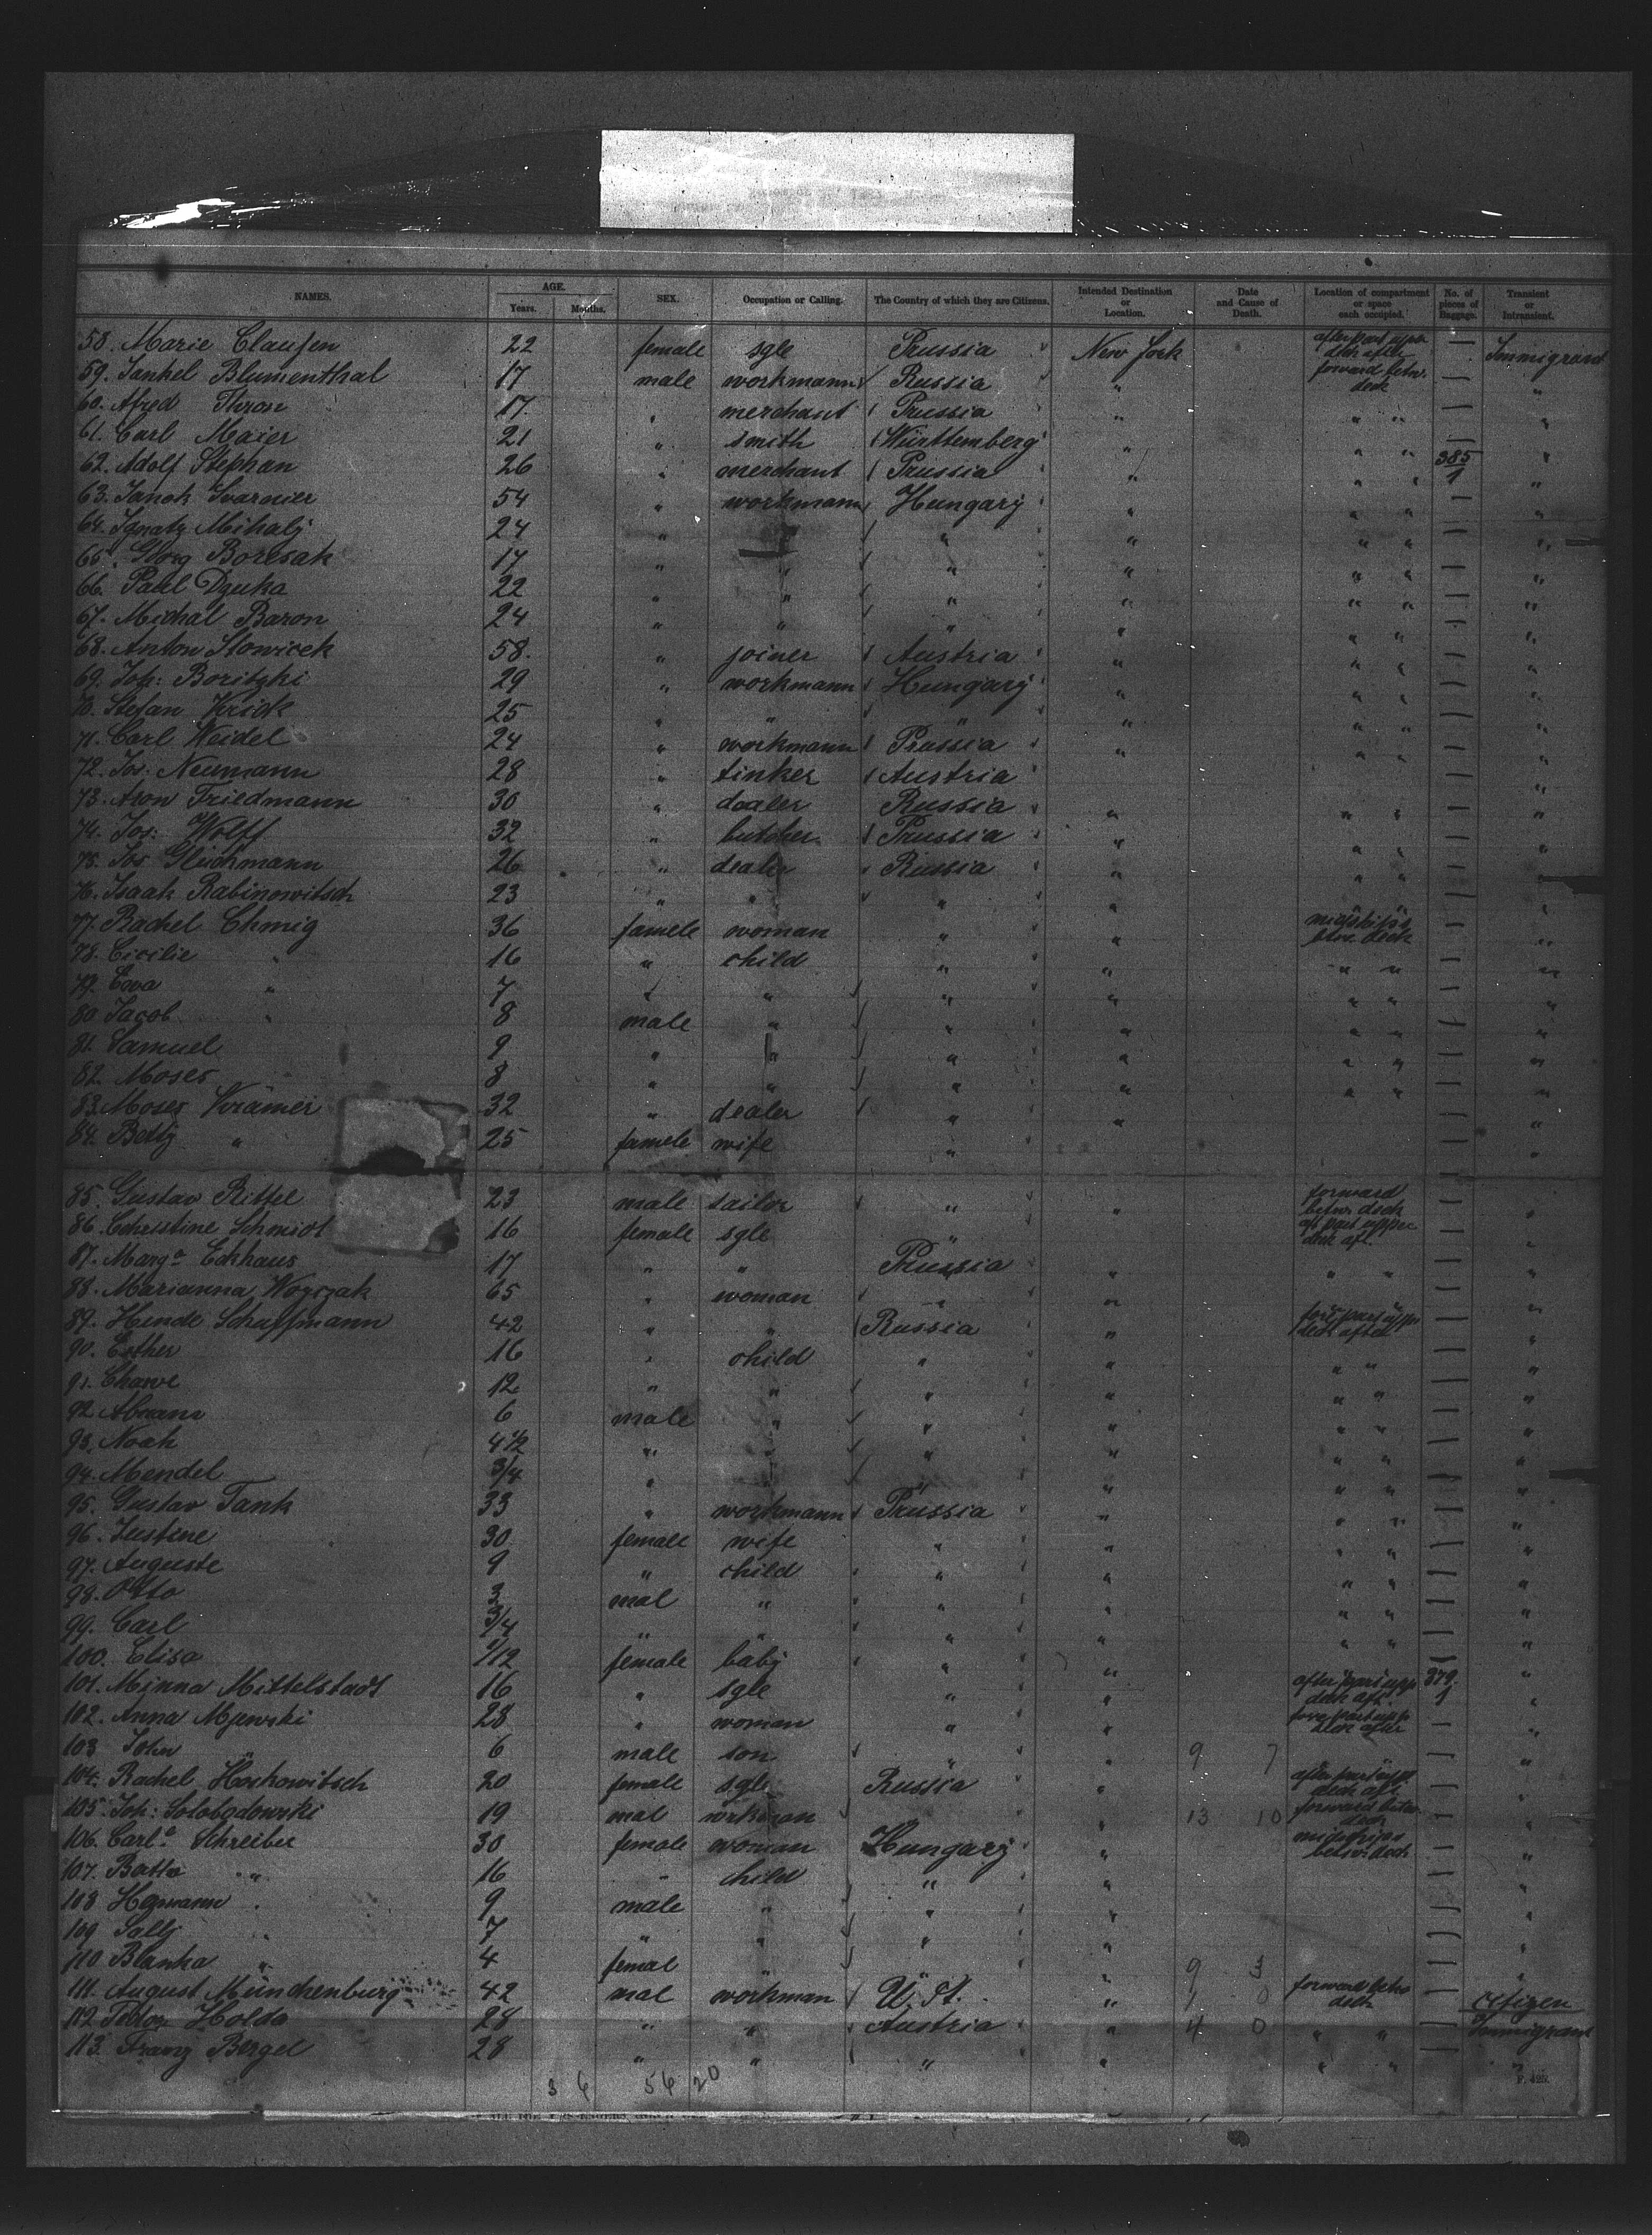 NAMES. AGE. Years. Months. SEX. Occupation or Calling. The Country of which they are Citizens. Intended Destination or Location. Date and Cause of Death. Location of compartment or space each occupied. No. of pieces of Baggage. Transient or Intransient.
58. Marie Claussen 22 female sgle Prussia New York after part upper deck after — Immigrant
59. Jankel Blumenthal 17 male workmann Russia " forward betw. deck — "
60. Afred Thron 17 " merchant Prussia " " " — "
61. Carl Maier 21 " smith Württemberg " " " — "
62. Adolf Stephan 26 " merchant Prussia " " " 385/1 "
63. Janok 54 " workmann Hungary " " " — "
64. Ignatz Mihalj 24 " " " " " — "
65. Georg Boresak 17 " " " " " " — "
66. Paul Dzuka 22 " " " " " " — "
67. Michal Baron 24 " " " " " " — "
68. Anton Slowicek 58. " joiner Austria " " " — "
69. Joh: Boritzki 29 " workmann Hungary " " " — "
70. Stefan Krick 25 " " " " " " — "
71. Carl Weidel 24 " workmann Prussia " " " — "
72. Jos. Neumann 28 " tinker Austria — "
73. Aron Friedmann 30 " dealer Russia " " " — "
74. Jos: Wolff 32 " butcher Prussia " " " — "
75. Jos Glückmann 26 " dealer Russia " " " — "
76. Isaak Rabinowitsch 23 " " " " — "
77. Rachel Chmig 36 famele woman " " midships betw. deck — "
78. Cicilie " 16 " child " " " " — "
79. Eva " 7 " " " " " " — "
80 Jacob " 8 male " " " " " — "
81. Samuel 9 " " " " " " — "
82. Moses 8 " " " " " " — "
83. Moses Krämer 32 " dealer " " — "
84. Betty " 25 famele wife " — "
85. Gustav Rittel 23 male tailor " " forward betw. deck — "
86. Christine Schmidt 16 female sgle " aft part upper deck aft. — "
87. Marg.a Eckhaus 17 " " Prussia " " " — "
88. Marianna Woyczak 65 " woman " " — "
89. Hinde Schuffmann 42 " " Russia " fore part upp deck after — "
90. Esther 16 " child " " " " — "
91. Chawe 12 " " " " " " — "
92. Abram 6 male " " " " " — "
93. Noah 4½ " " " " " " — "
94. Mendel 3/4 " " " " " " — "
95. Gustav Tank 33 " workmann Prussia " " " — "
96. Justine 30 female wife " " " " — "
97. Auguste 9 " child " " " " — "
98. Otto 3 mal " " " " " — "
99. Carl 3/4 " " " " " " — "
100. Elisa 1/12 female baby " " — "
101. Minna Mittelstadt 16 " sgle " " after part upp deck aft. 379/1 "
102. Anna Majewski 28 " woman " " fore part upp deck after — "
103 John 6 male son " " 9 7 — "
104. Rachel Höckowitsch 20 female sgle Russia " after part upp deck aft. — "
105. Joh: Solobodowski 19 mal workman " 13 10 forward betw. deck — "
106. Carl.a Schreiber 30 female woman Hungary " midships betw. deck — "
107. " 16 " child " " — "
108 Hermann " 9 male " " " — "
109 Sally " 7 " " " " — "
110 Blanka " 4 femal " " 9 3 — "
111. August Münchenburg 42 mal workman U. St. " 1 0 forward betw deck — citizen
112 Holda 28 " " Austria " 4 0 " " — Immigrant
113. Franz Bergel 28 " " " " " " — "
3 6 56 20
F. 425.